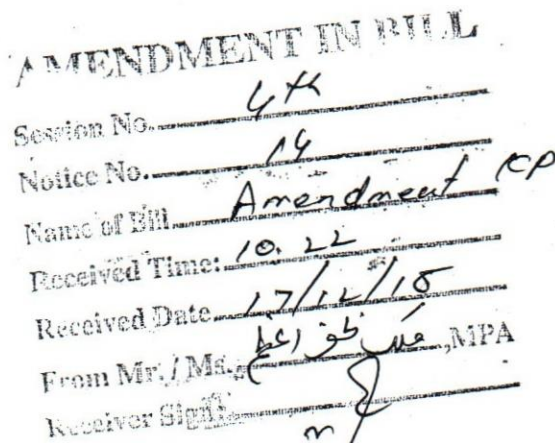 AMENDMENT IN BILL
Session No. 4th
Notice No. 14
Name of Bill Amendment KP
Received Time: 10.22
Received Date 17/12/18
From Mr./Ms. ملک ظفر اعظم, MPA
Receiver Sign: